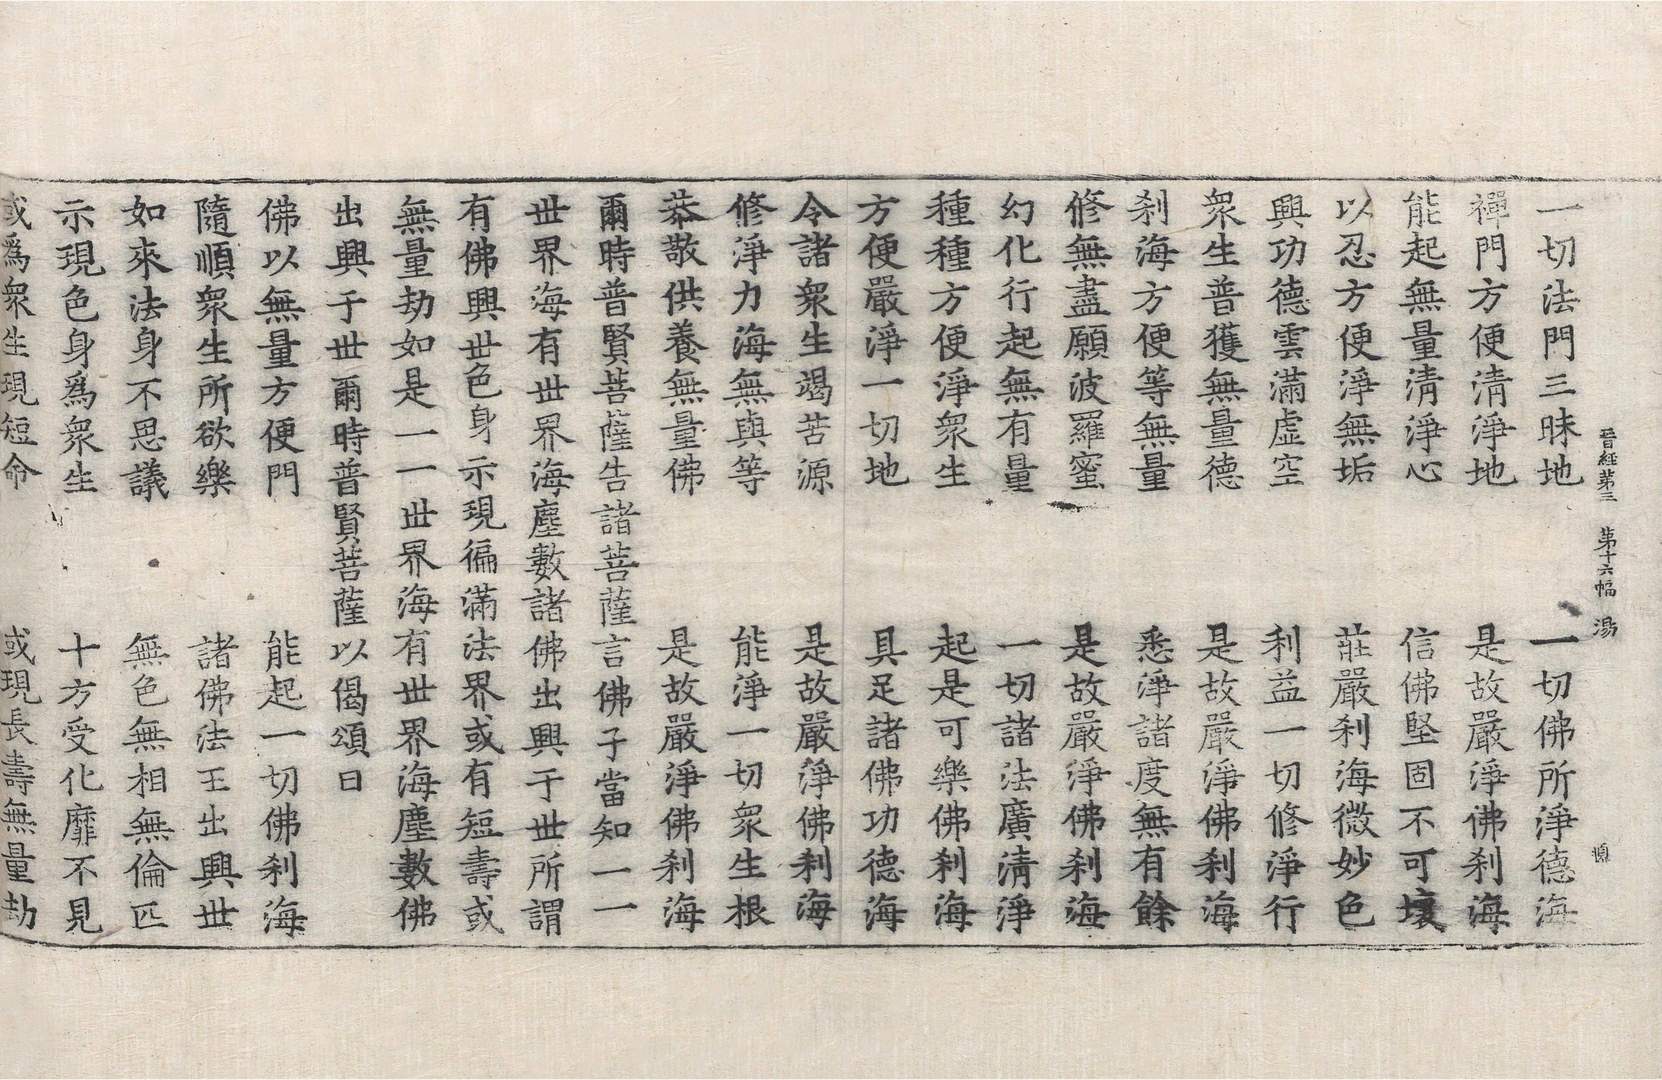 晉經第三　第十六幅　湯
一切法門三昧地　一切佛所淨德海
禪門方便清淨地　是故嚴淨佛刹海
能起無量清淨心　信佛堅固不可壞
以忍方便淨無垢　莊嚴刹海微妙色
興功德雲滿虛空　利益一切修淨行
衆生普獲無量德　是故嚴淨佛刹海
刹海方便等無量　悉淨諸度無有餘
修無盡願波羅蜜　是故嚴淨佛刹海
幻化行起無有量　一切諸法廣清淨
種種方便淨衆生　起是可樂佛刹海
方便嚴淨一切地　具足諸佛功德海
令諸衆生竭苦源　是故嚴淨佛刹海
修淨力海無與等　能淨一切衆生根
恭敬供養無量佛　是故嚴淨佛刹海
爾時普賢菩薩告諸菩薩言佛子當知一一
世界海有世界海塵數諸佛出興于世所謂
有佛興世色身示現徧滿法界或有短壽或
無量劫如是一一世界海有世界海塵數佛
出興于世爾時普賢菩薩以偈頌曰
佛以無量方便門　能起一切佛刹海
隨順衆生所欲樂　諸佛法王出興世
如來法身不思議　無色無相無倫匹
示現色身爲衆生　十方受化靡不見
或爲衆生現短命　或現長壽無量劫